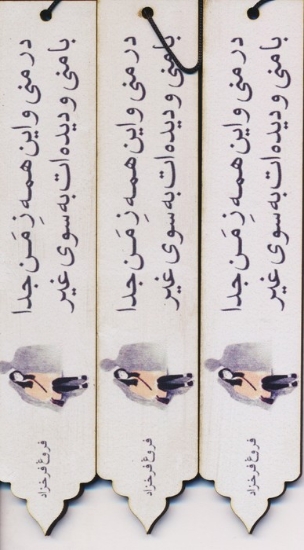 در منی و این همه زِ مَن جدا
با منی و دیده‌ات به سوی غیر
فروغ فرخزاد
در منی و این همه زِ مَن جدا
با منی و دیده‌ات به سوی غیر
فروغ فرخزاد
در منی و این همه زِ مَن جدا
با منی و دیده‌ات به سوی غیر
فروغ فرخزاد